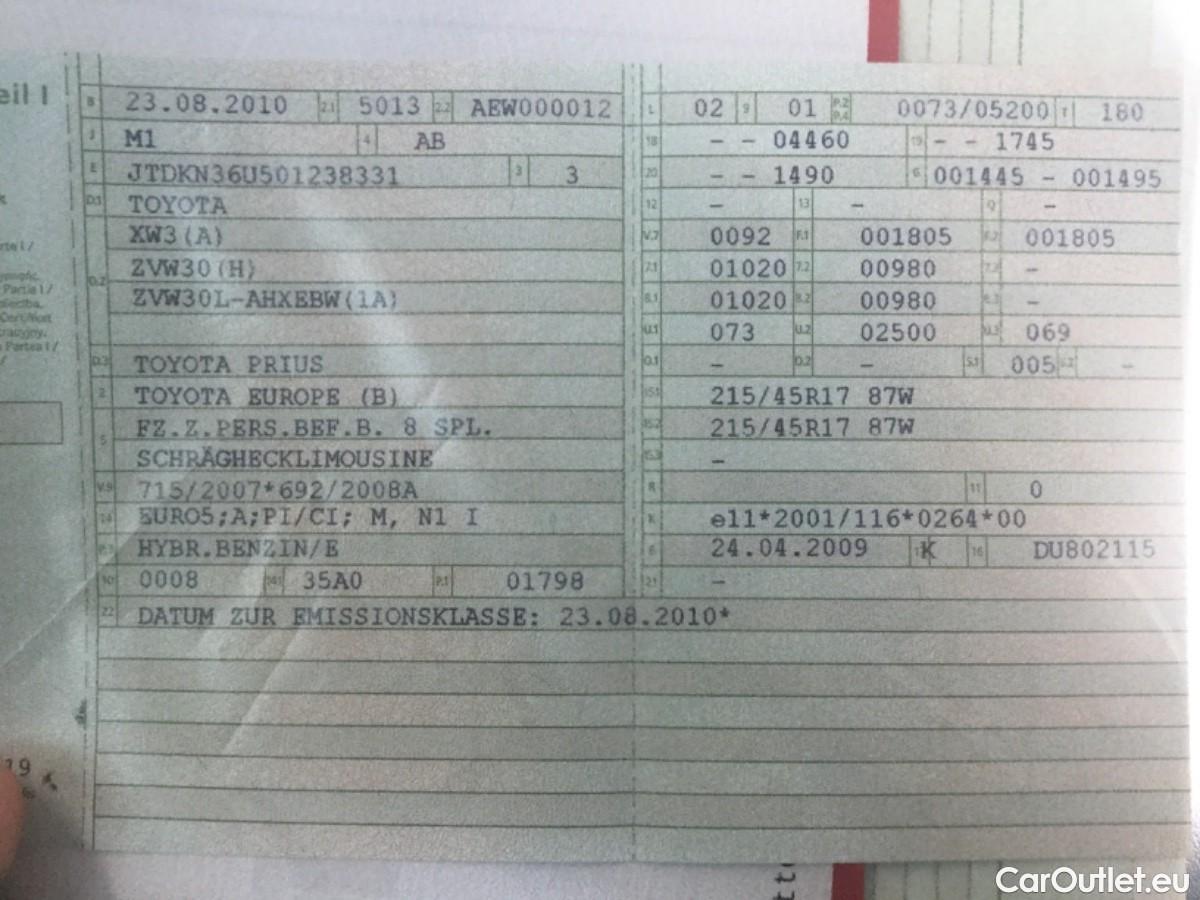 eil I
B 23.08.2010 2.1 5013 2.2 AEW000012 L 02 9 01 P.2 P.4 0073/05200 T 180
J M1 4 AB 18 - - 04460 19 - - 1745
E JTDKN36U501238331 3 3 20 - - 1490 G 001445 - 001495
D.1 TOYOTA 12 - 13 - Q -
XW3(A) V.7 0092 F.1 001805 F.2 001805
D.2 ZVW30(H) 7.1 01020 7.2 00980 7.3 -
ZVW30L-AHXEBW(1A) 8.1 01020 8.2 00980 8.3 -
U.1 073 U.2 02500 U.3 069
D.3 TOYOTA PRIUS O.1 - O.2 - S.1 005 S.2 -
2 TOYOTA EUROPE (B) 15.1 215/45R17 87W
5 FZ.Z.PERS.BEF.B. 8 SPL. 15.2 215/45R17 87W
SCHRÄGHECKLIMOUSINE 15.3 -
V.9 715/2007*692/2008A R 11 0
14 EURO5;A;PI/CI; M, N1 I K e11*2001/116*0264*00
P.3 HYBR.BENZIN/E 6 24.04.2009 17 K 16 DU802115
10 0008 14.1 35A0 P.1 01798 21 -
22 DATUM ZUR EMISSIONSKLASSE: 23.08.2010*
Partie I /
Partea I /
19
CarOutlet.eu